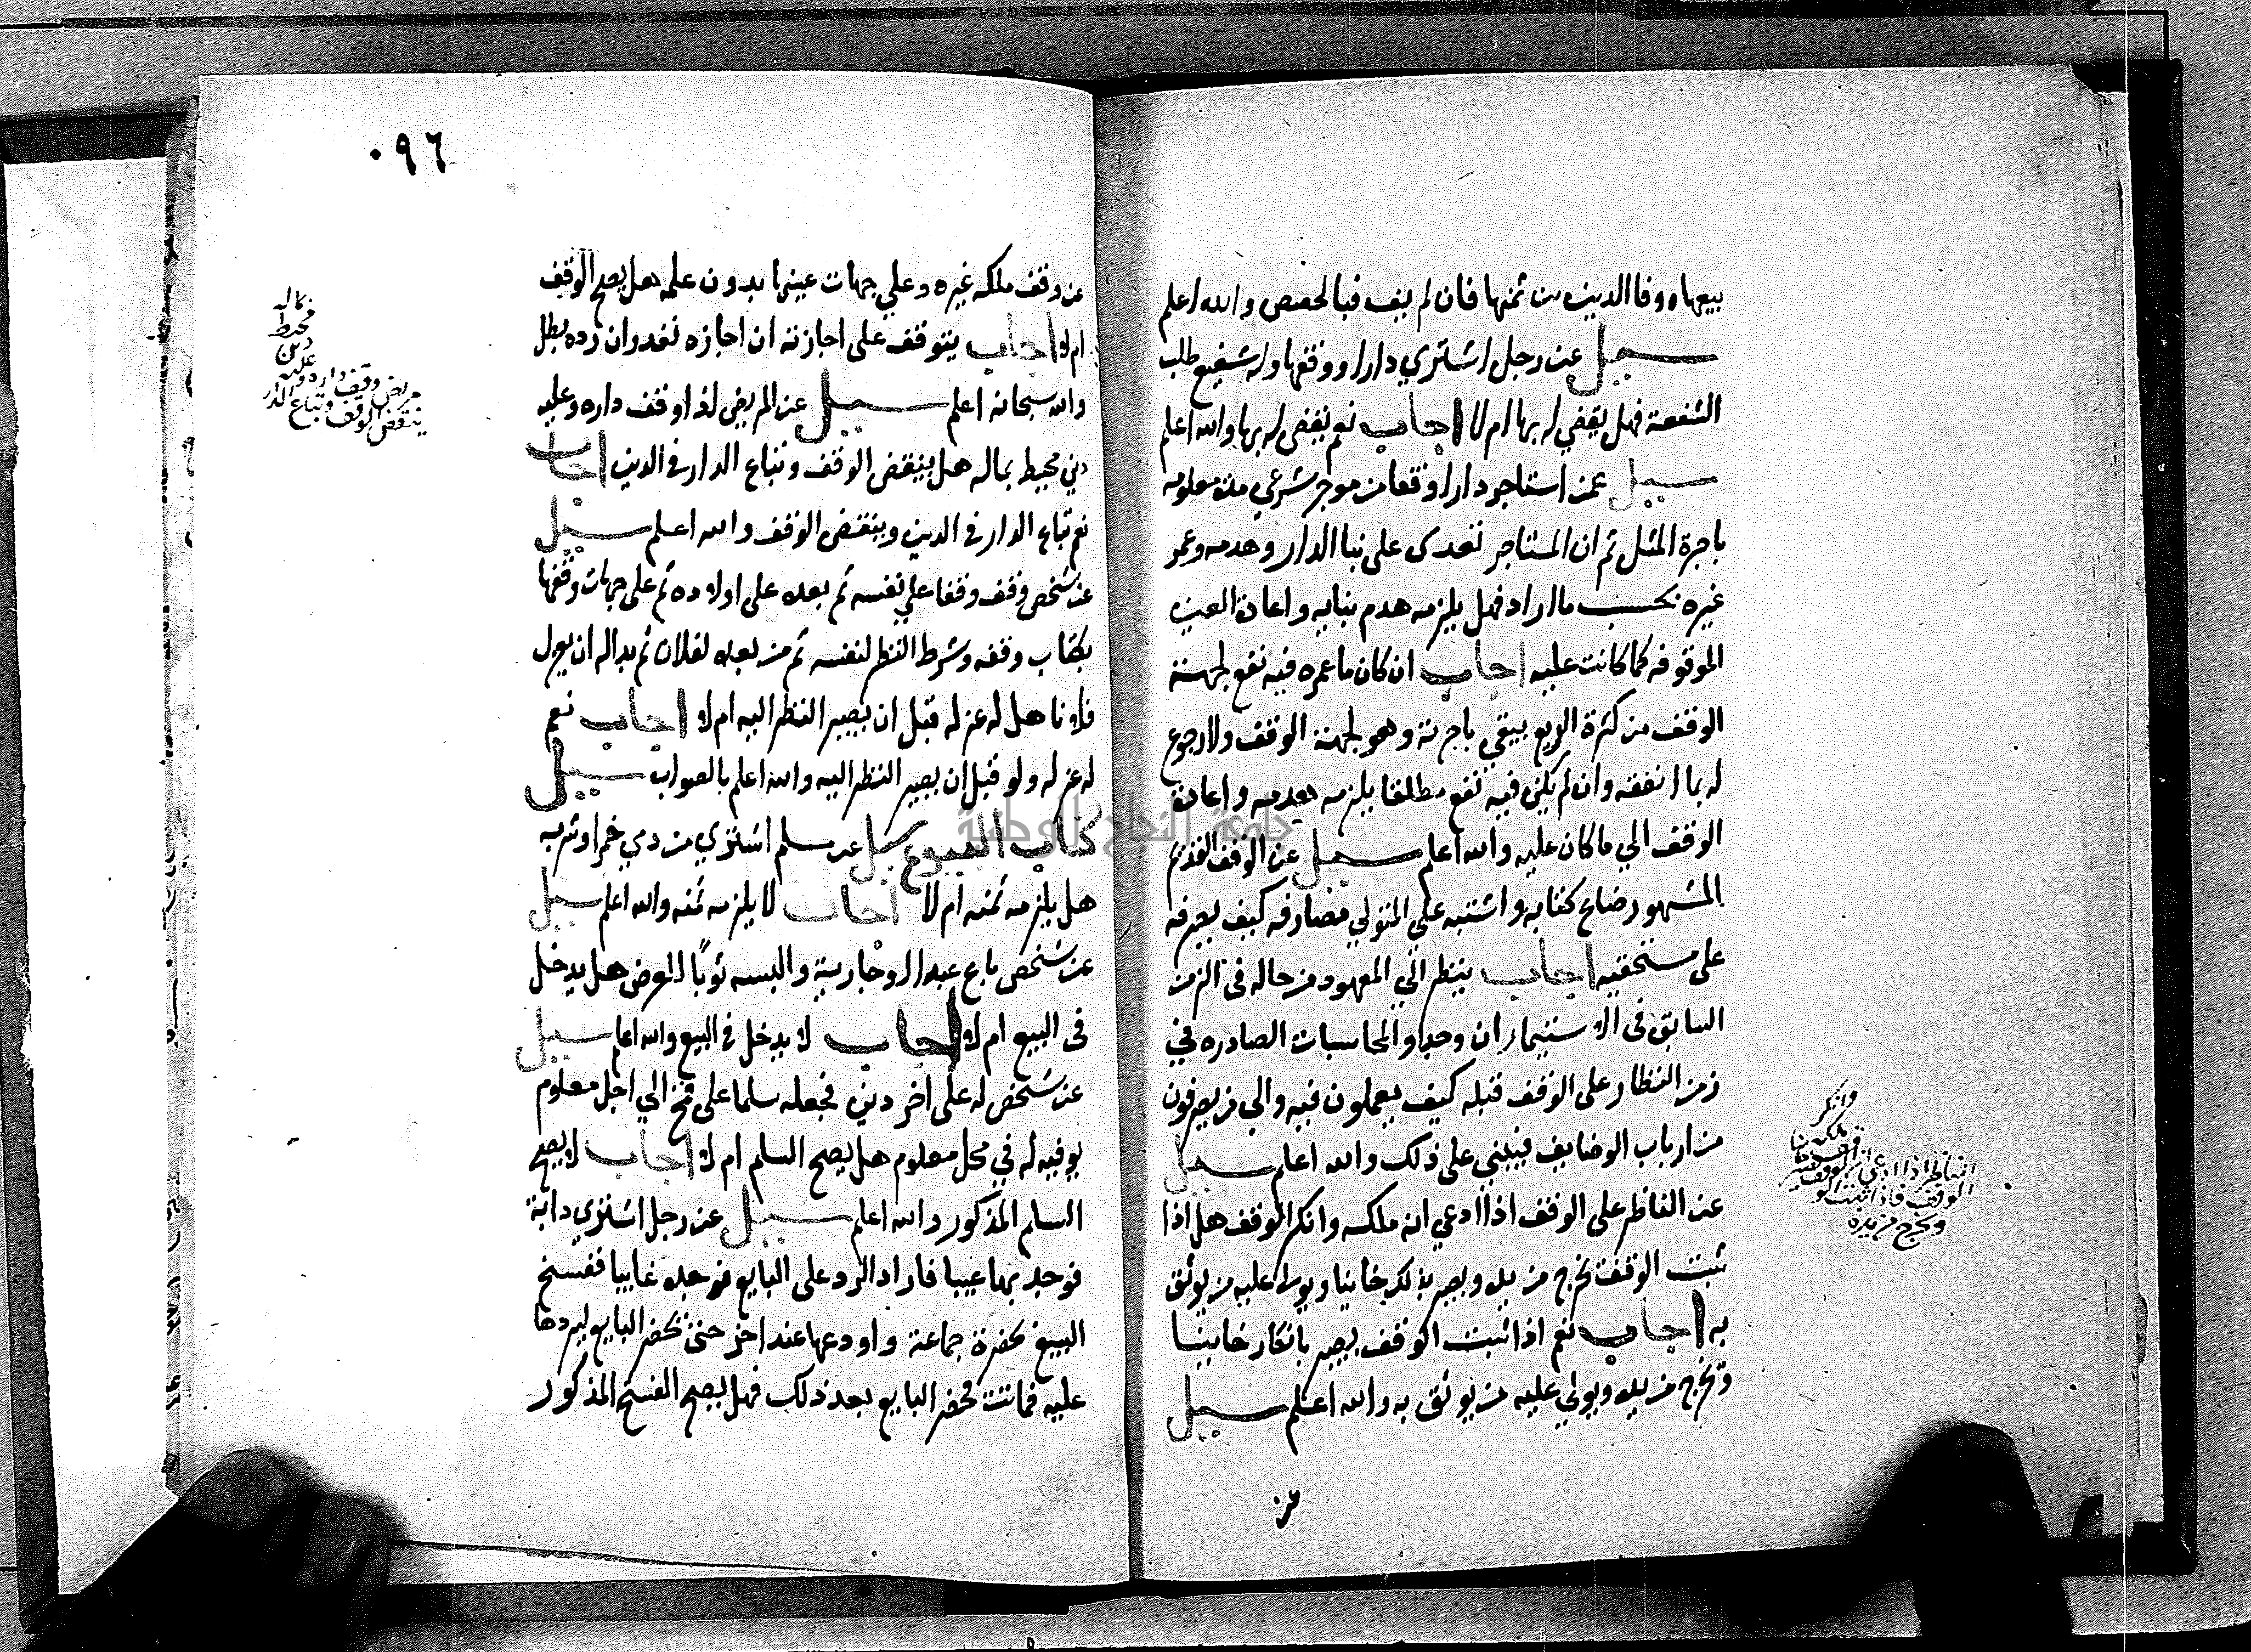 بيعها ووفا الدين من ثمنها فان لم يف فبالحصص والله اعلم
سيل عن رجل اشتري دارا ووقفها وله شفيع طلب
الشفعة فهل يقضي له بها ام لا اجاب نعم يقضى له بها والله اعلم
سيل عمن استاجر دارا وقفا من موجر شرعي مدة معلومه
باجرة المثل ثم ان المستاجر تعدى على بنا الدار وهدمه وعمر
غيره بحسب ما اراد فهل يلزمه هدم بنايه واعادة العين
الموقوفه كما كانت عليه اجاب ان كان ما عمره فيه نفع لجهة
الوقف من كثرة الريع يبقي باجرته وهو لجهة الوقف ولا رجوع
له بما انفقه وان لم يكن فيه نفع مطلقا يلزمه هدمه واعادة
الوقف الي ما كان عليه والله اعلم سيل عن الوقف القديم
المشهور ضاع كتابه واشتبه علي المتولي مصارفه كيف يصرفه
على مستحقيه اجاب ينظر الي المعهود من حاله فى الزمن
السابق فى الاستيمار ان وجد والمحاسبات الصادره في
زمن النظار على الوقف قبله كيف يعملون فيه والي من يصرفون
من ارباب الوضايف فيبني على ذلك والله اعلم سيل
عن الناظر على الوقف اذا ادعي انه ملكه وانكر الوقف هل اذا
ثبت الوقف يخرج من يده ويصير بذلك خاينا ويولي عليه من يوثق
به اجاب نعم اذا ثبت الوقف يصير بانكار خاينا
وتخرج من يده ويولي عليه من يوثق به والله اعلم سيل
عن
وانكر
الناظر اذا ادعي
الوقف فاذا ثبت
ويخرج من يده
٠٩٦
عن وقف ملكه غيره وعلي جهات عينها بدون علمه هل يصح الوقف
ام لا اجاب يتوقف على اجازته ان اجازه نفد وان رده بطل
والله سبحانه اعلم سيل عن المريض اذا وقف داره وعليه
دين محيط بماله هل ينقض الوقف وتباع الدار فى الدين اجاب
نعم تباع الدار فى الدين وينقض الوقف والله اعلم سيل
عن شخص وقف وقفا علي نفسه ثم بعده على اولاده ثم على جهات وقفها
بكتاب وقفه وشرط النظر لنفسه ثم من بعده لفلان ثم بدا له ان يعزل
فلانا هل له عزله قبل ان يصير النظر اليه ام لا اجاب نعم
له عزله ولو قبل ان يصير النظر اليه والله اعلم بالصواب سيل
كتاب البيوع سيل عن مسلم اشتري من دمي خمرا وشربه
هل يلزمه ثمنه ام لا اجاب لا يلزمه ثمنه والله اعلم سيل
عن شخص باع عبدا او جارية والبسه ثوبًا للعرض هل يدخل
فى البيع ام لا اجاب لا يدخل في البيع والله اعلم سيل
عن شخص له على اخر دين فجعله سلما على قمح الي اجل معلوم
يوفيه له في محل معلوم هل يصح السلم ام لا اجاب لا يصح
السلم المذكور والله اعلم سيل عن رجل اشتري دابة
فوجد بها عيبا فاراد الرد على البايع فوجده غايبا ففسخ
البيع بحضرة جماعة واودعها عند اخر حتى يحضر البايع ليردها
عليه فماتت فحضر البايع بعد ذلك فهل يصح الفسخ المذكور
محيط
دين
عليه
مريض وقف داره و
ينقض الوقف وتباع الدار
جامعة النجاح الوطنية